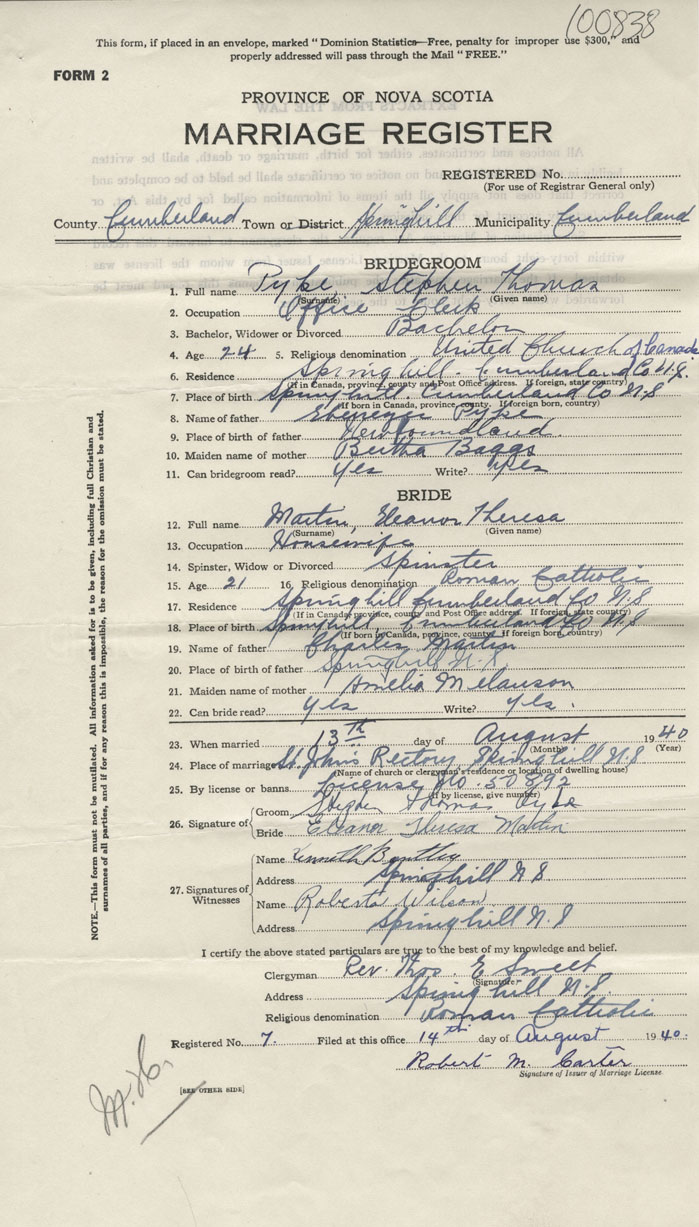 100838
This form, if placed in an envelope, marked "Dominion Statistics—Free, penalty for improper use $300," and
properly addressed will pass through the Mail "FREE."
FORM 2
PROVINCE OF NOVA SCOTIA
MARRIAGE REGISTER
REGISTERED No.
(For use of Registrar General only)
County Cumberland Town or District Springhill Municipality Cumberland
BRIDEGROOM
1. Full name Pyke, Stephen Thomas
(Surname) (Given name)
2. Occupation Office Clerk
3. Bachelor, Widower or Divorced Bachelor
4. Age 24 5. Religious denomination United Church of Canada
6. Residence Springhill. Cumberland Co N.S.
(If in Canada, province, county and Post Office address. If foreign, state county)
7. Place of birth Springhill. Cumberland Co N.S
(If born in Canada, province, county. If foreign born, country)
8. Name of father Ebenezer Pyke
9. Place of birth of father Newfoundland.
10. Maiden name of mother Bertha Baggs
11. Can bridegroom read? Yes Write? Yes
BRIDE
12. Full name Martin, Eleanor Theresa
(Surname) (Given name)
13. Occupation Housewife
14. Spinster, Widow or Divorced Spinster
15. Age 21 16. Religious denomination Roman Catholic
17. Residence Springhill Cumberland Co N.S
(If in Canada, province, county and Post Office address. If foreign, state county)
18. Place of birth Springhill, Cumberland Co N.S
(If born in Canada, province, county. If foreign born, country)
19. Name of father Charles Martin
20. Place of birth of father Springhill N.S
21. Maiden name of mother Amelia Melanson
22. Can bride read? Yes Write? Yes.
23. When married 13th day of August 1940
(Month) (Year)
24. Place of marriage St. John's Rectory Springhill N.S
(Name of church or clergyman's residence or location of dwelling house)
25. By license or banns. License No. 50892
(If by license, give number)
26. Signature of
Groom Stephen Thomas Pyke
Bride Eleanor Theresa Martin
27. Signatures of Witnesses
Name Kenneth Bentley
Address Springhill N.S
Name Roberta Wilson
Address Springhill N.S
I certify the above stated particulars are true to the best of my knowledge and belief.
Clergyman Rev. Thos. E Sweet
(Signature)
Address Springhill N.S.
Religious denomination Roman Catholic
Registered No. 7. Filed at this office 14th day of August 1940.
Robert M. Carter
Signature of Issuer of Marriage License
[SEE OTHER SIDE]
NOTE.—This form must not be mutilated. All information asked for is to be given, including full Christian and
surnames of all parties, and if for any reason this is impossible, the reason for the omission must be stated.